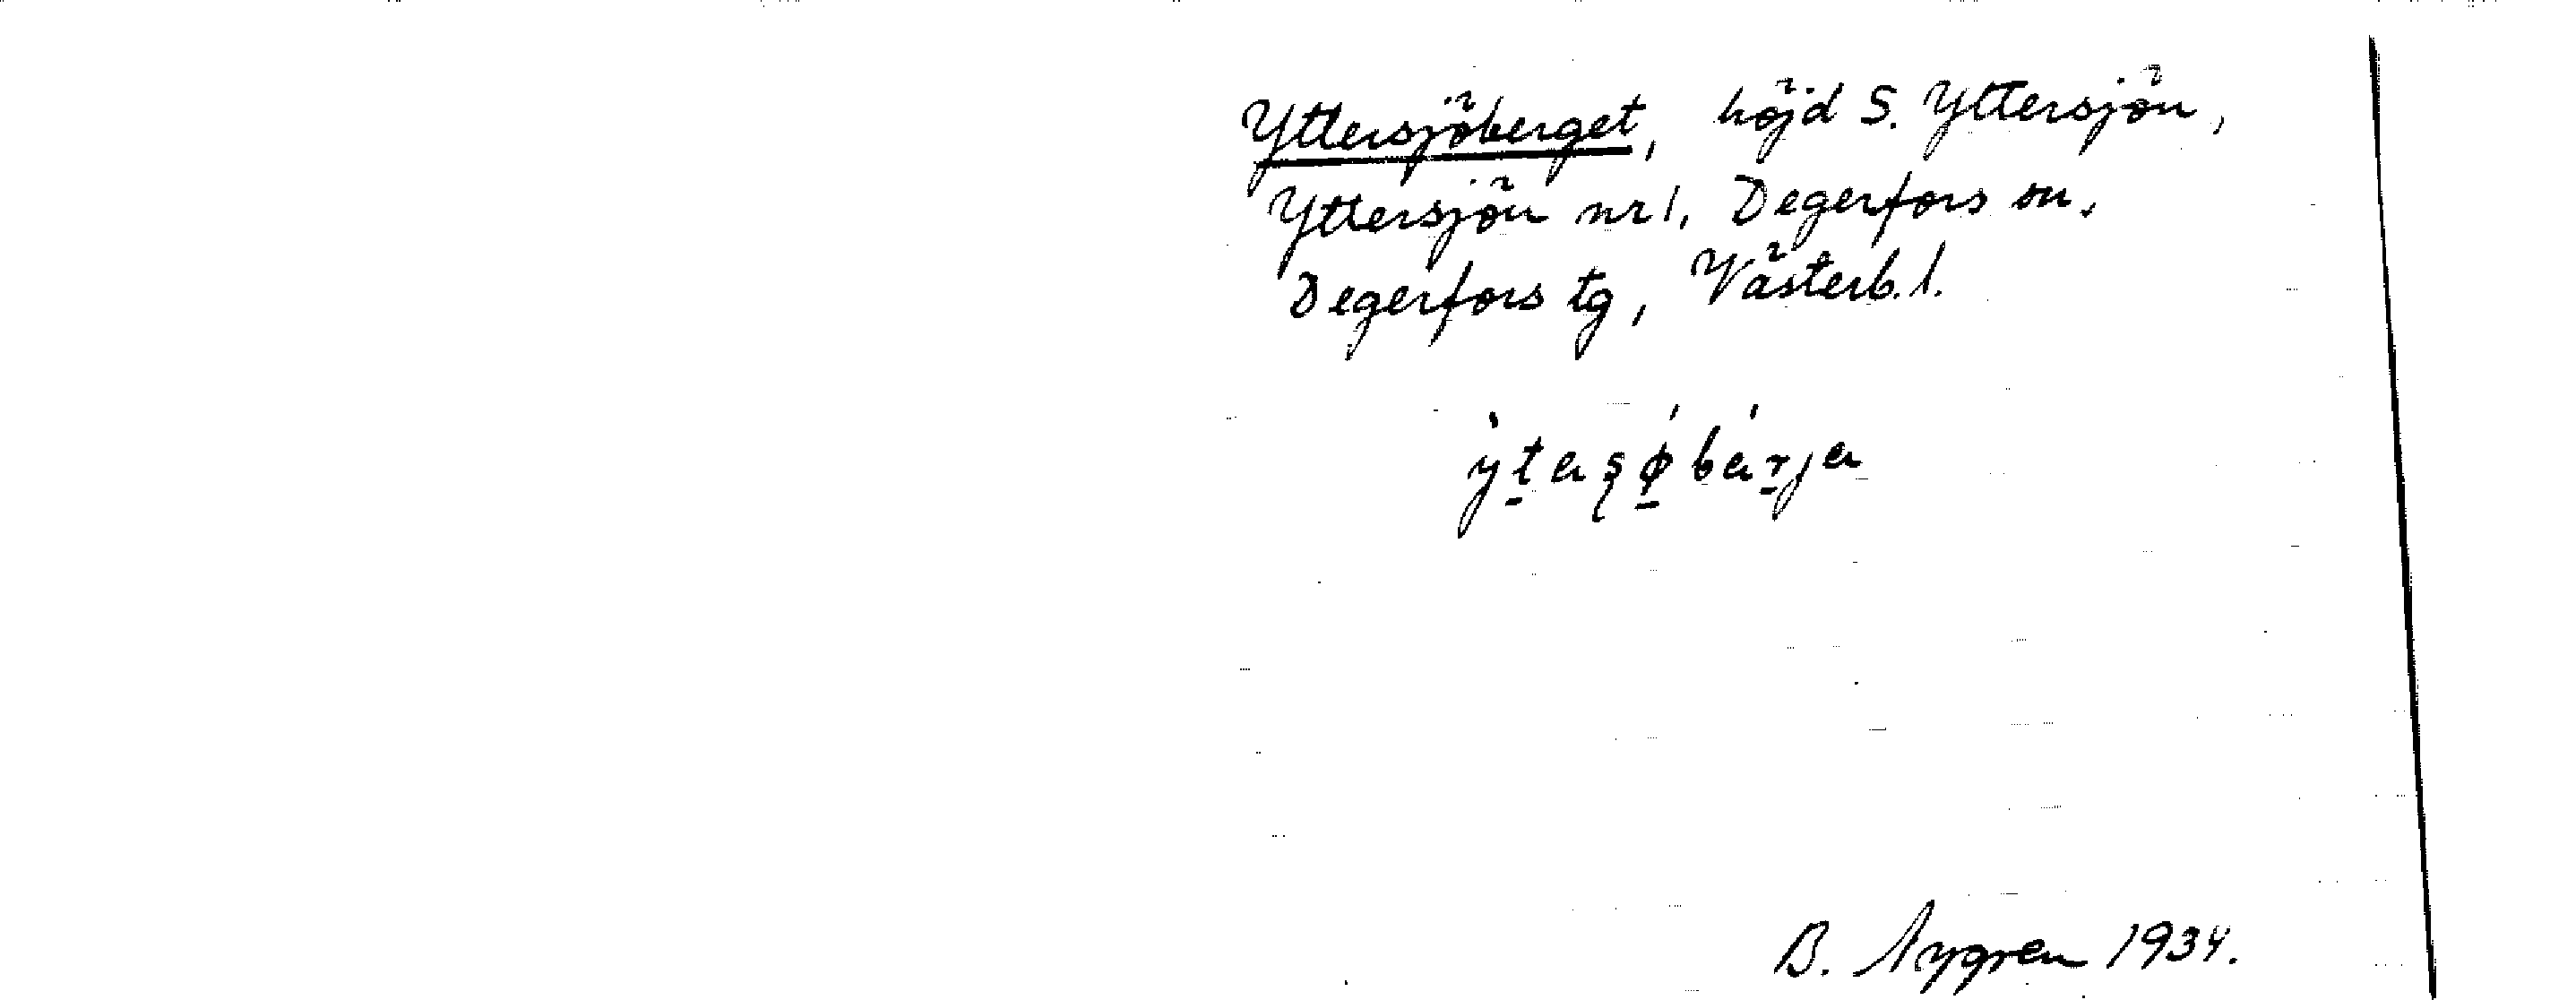 Yttersjöberget, höjd S. Yttersjön,
Yttersjön nr 1, Degerfors sn.
Degerfors tg, Västerb. l.
B. Nygren 1934.